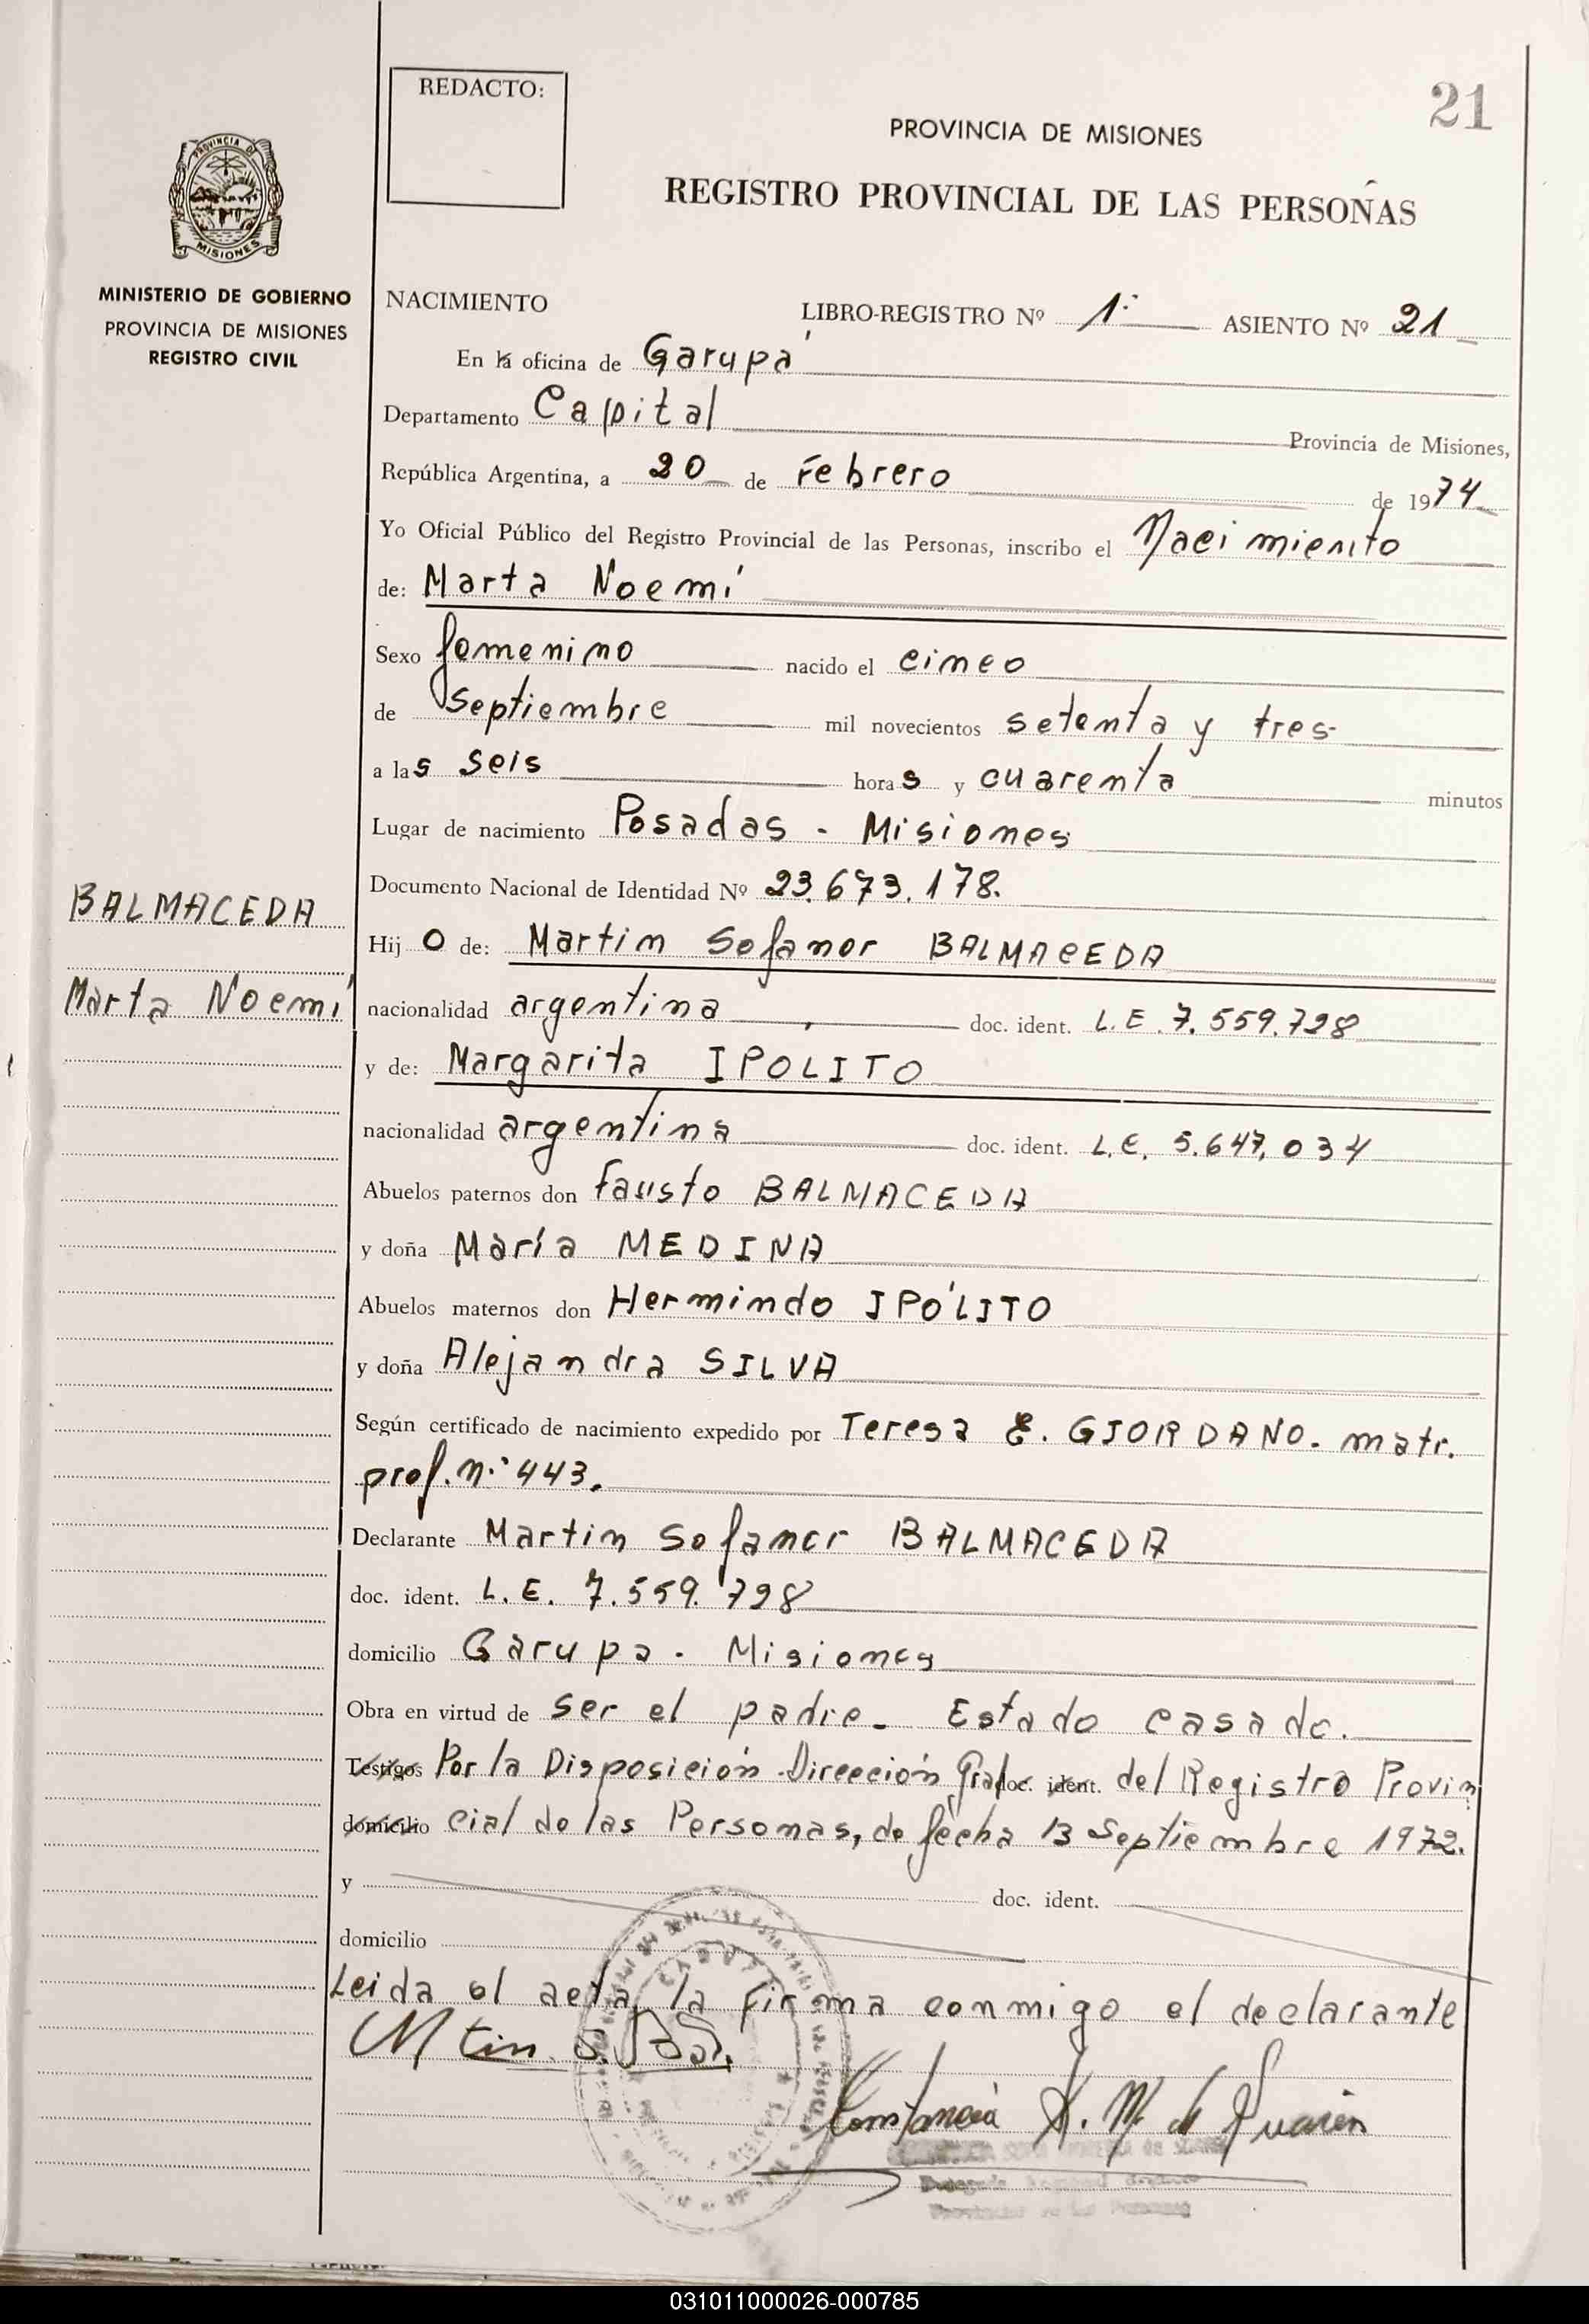 REDACTO:
21
PROVINCIA DE MISIONES
REGISTRO PROVINCIAL DE LAS PERSONAS
PROVINCIA DE
MISIONES
MINISTERIO DE GOBIERNO
PROVINCIA DE MISIONES
REGISTRO CIVIL
NACIMIENTO LIBRO-REGISTRO Nº 1º ASIENTO Nº 21
En la oficina de Garupá
Departamento Capital Provincia de Misiones,
República Argentina, a 20 de Febrero de 1974
Yo Oficial Público del Registro Provincial de las Personas, inscribo el Nacimiento
de: Marta Noemí
Sexo femenino nacido el cinco
de Septiembre mil novecientos setenta y tres
a las seis horas y cuarenta minutos
Lugar de nacimiento Posadas - Misiones
Documento Nacional de Identidad Nº 23.673.178.
BALMACEDA
Marta Noemí
Hijo de: Martin Sofanor BALMACEDA
nacionalidad argentina doc. ident. L.E. 7.559.728
y de: Margarita IPÓLITO
nacionalidad argentina doc. ident. L.E. 5.647.034
Abuelos paternos don Fausto BALMACEDA
y doña María MEDINA
Abuelos maternos don Hermindo IPÓLITO
y doña Alejandra SILVA
Según certificado de nacimiento expedido por Teresa E. GIORDANO. matr.
prof. nº 443.
Declarante Martin Sofanor BALMACEDA
doc. ident. L.E. 7.559.728
domicilio Garupa - Misiones
Obra en virtud de ser el padre - Estado casado.
Testigos Por la Disposición Dirección Gral doc. ident. del Registro Provin
domicilio cial de las Personas, de fecha 13 Septiembre 1972.
y doc. ident.
domicilio
Leida el acta, la firma conmigo el declarante
Mtin. S. Bal.
Constancia S. M. de Suarez
031011000026-000785